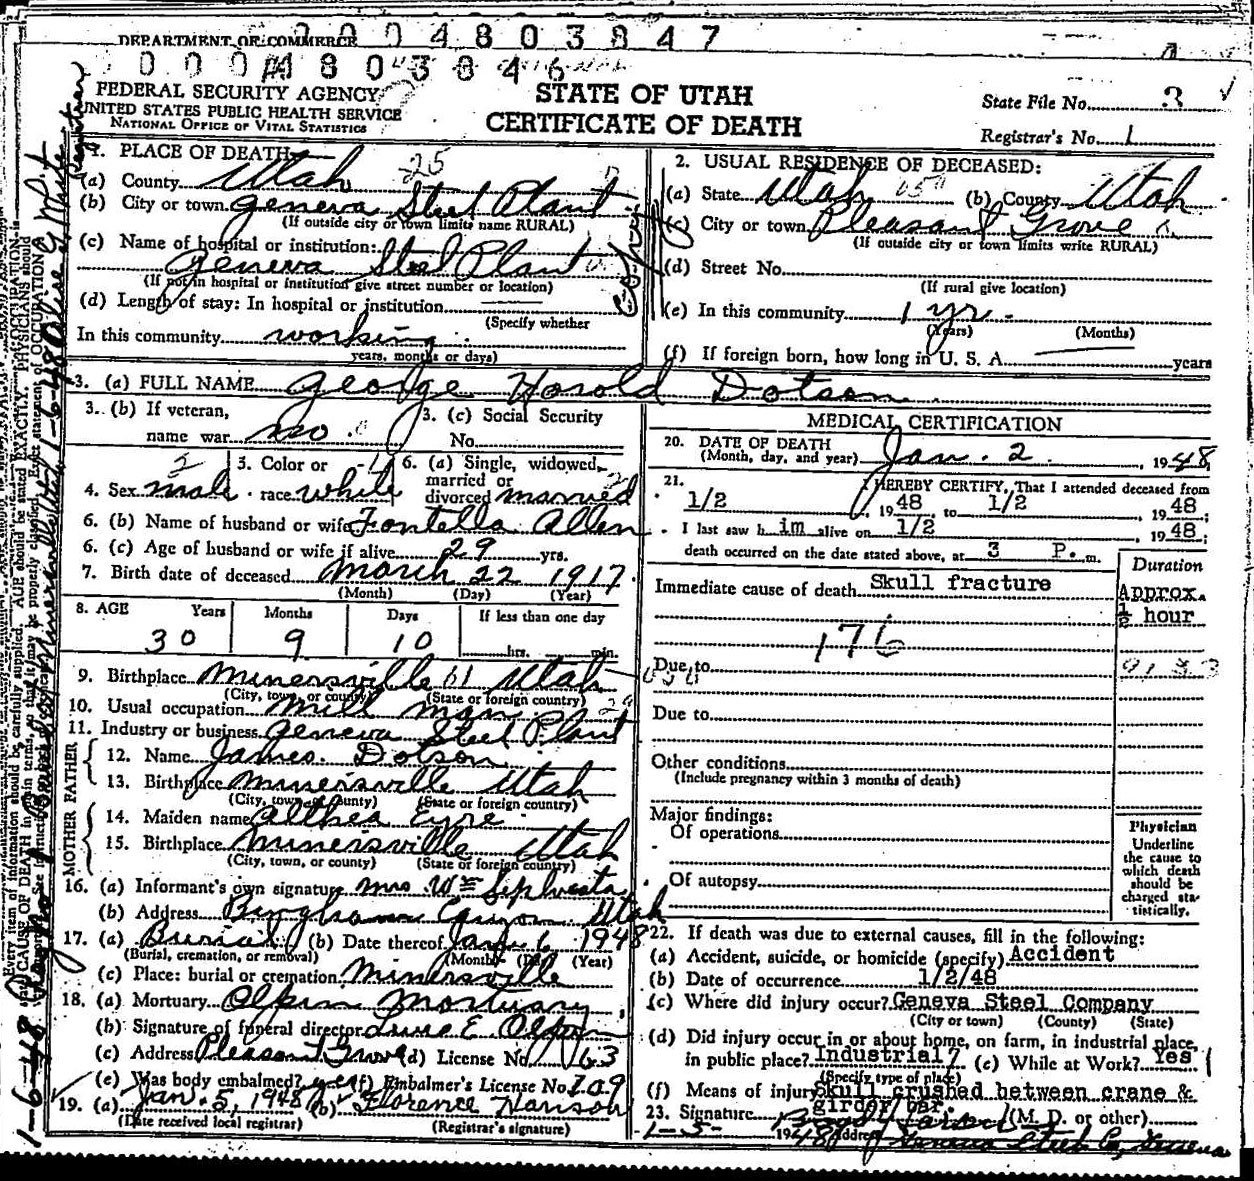 0004803847
DEPARTMENT OF COMMERCE
0004803846
FEDERAL SECURITY AGENCY
UNITED STATES PUBLIC HEALTH SERVICE
NATIONAL OFFICE OF VITAL STATISTICS
STATE OF UTAH
CERTIFICATE OF DEATH
State File No. 3
Registrar's No. 1
1. PLACE OF DEATH
25
(a) County Utah
(b) City or town Geneva Steel Plant
(If outside city or town limits name RURAL)
(c) Name of hospital or institution:
Geneva Steel Plant
(If not in hospital or institution give street number or location)
(d) Length of stay: In hospital or institution
(Specify whether
In this community working
years, months or days)
2. USUAL RESIDENCE OF DECEASED:
(a) State Utah (b) County Utah
(c) City or town Pleasant Grove
(If outside city or town limits write RURAL)
(d) Street No.
(If rural give location)
(e) In this community 1 yr.
(Years) (Months)
(f) If foreign born, how long in U. S. A. years
3. (a) FULL NAME George Harold Dotson
3. (b) If veteran,
name war no
3. (c) Social Security
No.
4. Sex male
5. Color or
race white
6. (a) Single, widowed,
married or
divorced married
6. (b) Name of husband or wife Fontella Allen
6. (c) Age of husband or wife if alive 29 yrs.
7. Birth date of deceased March 22 1917
(Month) (Day) (Year)
8. AGE Years Months Days If less than one day
30 9 10 hrs. min.
9. Birthplace Minersville 61 Utah
(City, town, or county) (State or foreign country)
10. Usual occupation Mill man
11. Industry or business Geneva Steel Plant
FATHER
12. Name James Dotson
13. Birthplace Minersville Utah
(City, town, or county) (State or foreign country)
MOTHER
14. Maiden name Althea Eyre
15. Birthplace Minersville Utah
(City, town, or county) (State or foreign country)
16. (a) Informant's own signature Mrs Wm
(b) Address Bingham Canyon Utah
17. (a) Burial (b) Date thereof Jan. 6 1948
(Burial, cremation, or removal) (Month) (Day) (Year)
(c) Place: burial or cremation Minersville
18. (a) Mortuary Olpin Mortuary
(b) Signature of funeral director E. Olpin
(c) Address Pleasant Grove (d) License No. 163
(e) Was body embalmed? yes (f) Embalmer's License No. 209
19. (a) Jan. 5, 1948 (b) Florence Hanson
(Date received local registrar) (Registrar's signature)
MEDICAL CERTIFICATION
20. DATE OF DEATH
(Month, day, and year) Jan. 2 1948
21. I HEREBY CERTIFY, That I attended deceased from
1/2, 1948 to 1/2, 1948;
I last saw him alive on 1/2, 1948;
death occurred on the date stated above, at 3 P. m.
Duration
Immediate cause of death Skull fracture
Approx.
½ hour
176
Due to
Due to
Other conditions
(Include pregnancy within 3 months of death)
Major findings:
Of operations
Of autopsy
Physician
Underline
the cause to
which death
should be
charged sta-
tistically.
22. If death was due to external causes, fill in the following:
(a) Accident, suicide, or homicide (specify) Accident
(b) Date of occurrence 1/2/48
(c) Where did injury occur? Geneva Steel Company
(City or town) (County) (State)
(d) Did injury occur in or about home, on farm, in industrial place,
in public place? Industrial (e) While at Work? Yes
(Specify type of place)
(f) Means of injury Skull crushed between crane &
girder bar.
23. Signature (M. D. or other)
1-5- 1948 Address Geneva Steel Co, Geneva